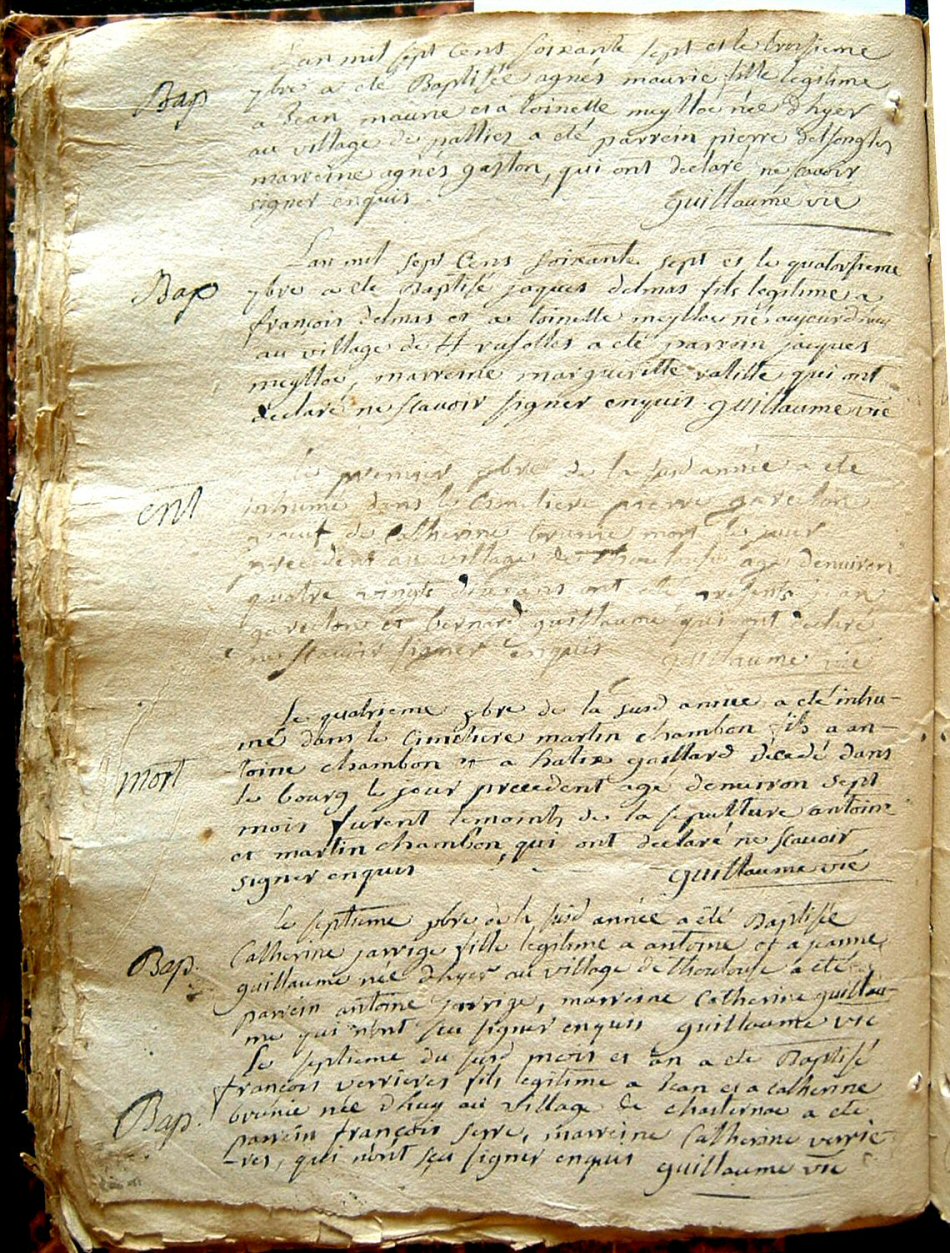 L'an mil sept cens soixante sept et le troisieme
Bap
7bre a eté Baptisée agnés maurie fille legitime
a Jean maurie et a toinette meylloc née d'hyer
au village de pallies a été parrein pierre
marreine agnés gaston, qui ont declaré ne scavoir
signer enquis. guillaume vie
L'an mil sept cens soixante sept et le quatorsieme
Bap
7bre a eté Baptisé jaques delmas fils legitime a
françois delmas et a toinette meylloc né aujourdhuy
au village de a été parrein jacques
meylloc, marreine margueritte valitte qui ont
declaré ne scavoir signer enquis guillaume vie
Le premier 9bre de la susd année a eté
ent
inhumé dans le cimetiere pierre
veuf de Catherine mort le jour
precedent au village de agé denviron
quatre vingts ans ont eté presents jean
et bernard guillaume qui ont declaré
ne scavoir signer enquis guillaume vie
Le quatrieme 9bre de la susd année a eté inhu-
mé dans le cimetiere martin chambon fils a an-
mort
toine chambon et a gaillard decedé dans
le bourg le jour precedent agé denviron sept
mois furent temoins de la sepulture antoine
et martin chambon, qui ont declaré ne scavoir
signer enquis guillaume vie
Le septieme 9bre de la susd année a été Baptisée
Catherine jarrige fille legitime a antoine et a jeanne
Bap.
guillaume née d'hyer au village de thoulouse a été
parrein antoine jarrige, marreine Catherine guillau-
me qui n'ont sçu signer enquis guillaume vie
Le septieme du susd mois et an a eté Baptisé
françois verrieres fils legitime a Jean et a Catherine
Bap.
brunie née d'huy au village de a eté
parrein françois serre, marreine Catherine verrie-
-res, qui n'ont sçu signer enquis guillaume vie